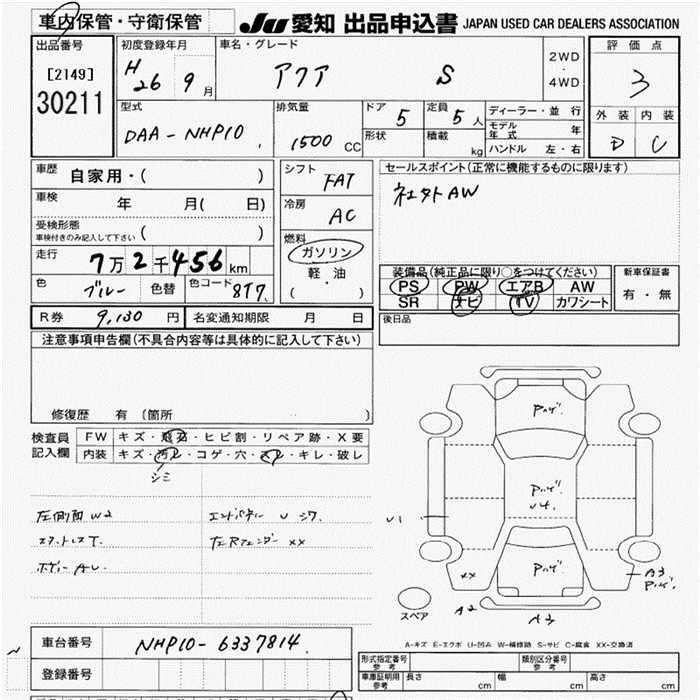 車内保管・守衛保管
JU 愛知 出品申込書 JAPAN USED CAR DEALERS ASSOCIATION
出品番号
[2149]
30211
初度登録年月
H 26 9月
車名・グレード
アクア S
2WD
・
4WD
評価点
3
外装 内装
D C
型式
DAA-NHP10
排気量
1500 CC
ドア 5
形状
定員 5人
積載 kg
ディーラー・並行
モデル年式 年
ハンドル 左・右
車歴 自家用・( )
車検 年 月( 日)
受検形態
車検付きのみ記入して下さい ( )
走行 7万2千456km
色 ブルー 色替 色コード 8T7
シフト FAT
冷房 AC
燃料
ガソリン
軽油
・
( )
セールスポイント(正常に機能するものに限ります)
社外AW
装備品(純正品に限り○をつけてください)
PS PW エアB AW
SR ナビ TV カワシート
新車保証書
有・無
R券 9,130円 名変通知期限 月 日
後日品
注意事項申告欄(不具合内容等は具体的に記入して下さい)
修復歴 有 〔箇所 〕
検査員
記入欄
FW キズ・飛石・ヒビ割・リペア跡・X要
内装 キズ・汚レ・コゲ・穴・スレ・キレ・破レ
シミ
左側面W2
エンドパネル U シワ
スタットレスT.
左Rフェンダー XX
ボディーAU
Pハゲ
Pハゲ
U4
Pハゲ
U1
XX
A2
A3
A3
Pハゲ
スペア
A-キズ E-エクボ U-凹み W-補修跡 S-サビ C-腐食 XX-交換済
車台番号 NHP10-6337814
登録番号
形式指定番号
参考
類別区分番号
参考
車庫証明用
参考
長さ cm 幅 cm 高さ cm